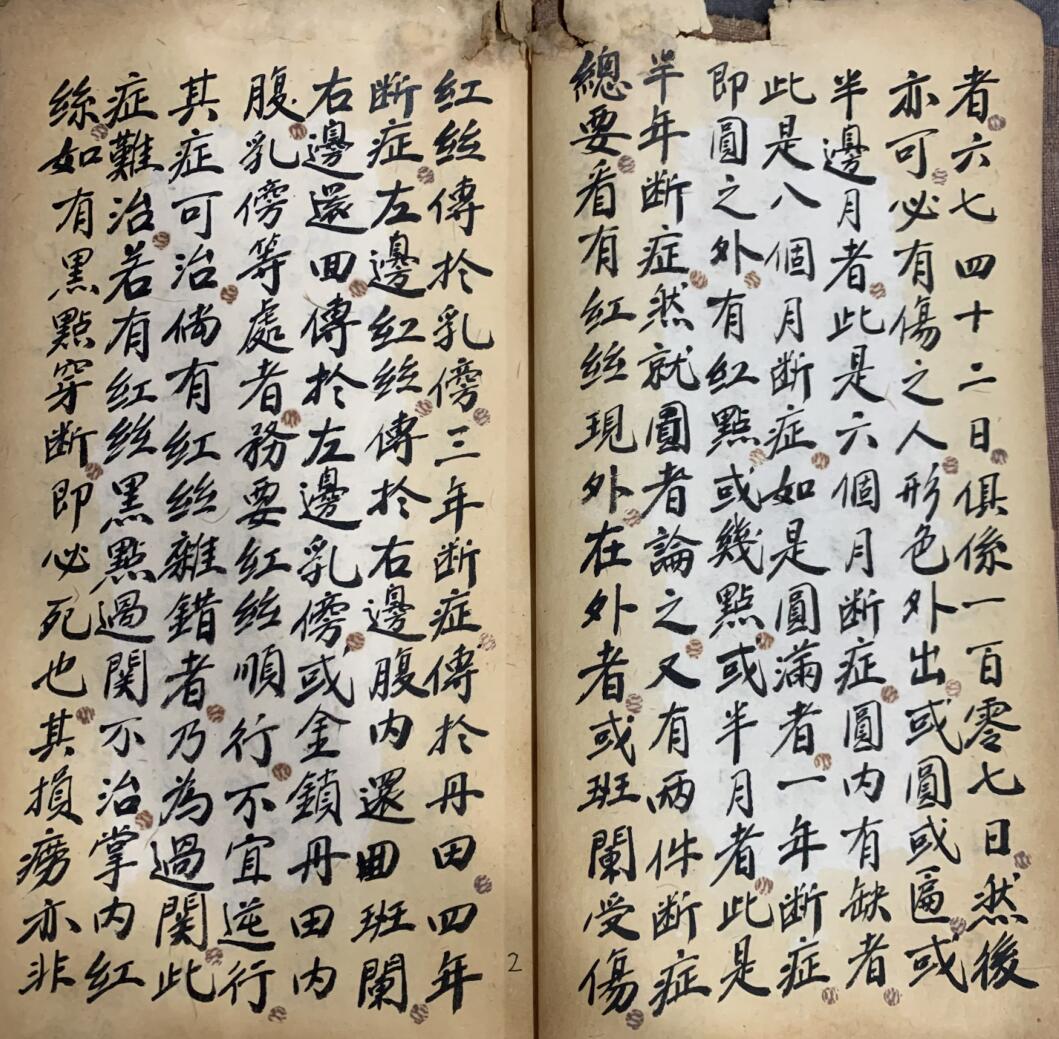 者六七四十二日俱係一百零七日然後
亦可必有傷之人形色外出或圓或匾或
半邊月者此是六個月断症圓內有缺者
此是八個月断症如是圓滿者一年断症
即圓之外有紅點或幾點或半月者此是
半年断症然就圓者論之又有两件断症
總要看有紅絲現外在外者或班闌受傷
紅絲傳扵乳傍三年断症傳扵丹田四年
断症左邊紅絲傳扵右邊腹内還田班闌
右邊還田傳扵左邊乳傍或金鎖丹田内
腹乳傍等處者務要紅絲順行不宜逆行
其症可治倘有紅絲雜錯者乃為過関此
症難治若有紅絲黑點過関不治掌内紅
絲如有黑點穿断即必死也其損癆亦非
2